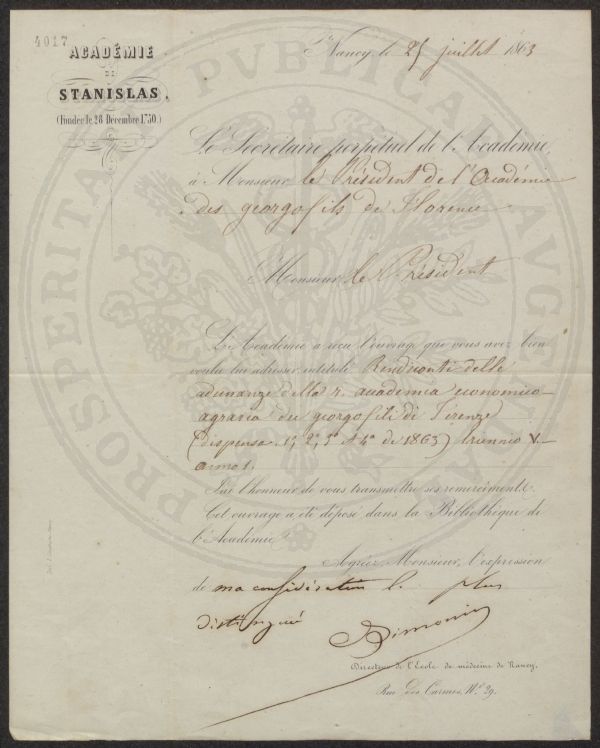 4017
ACADÉMIE
DE
STANISLAS,
(Fondée le 28 Décembre 1750.)
Nancy, le 25 juillet 1863
Le Secrétaire perpétuel de l'Académie,
à Monsieur le Président de l'Académie
des georgofils de Florence
Monsieur le Président
L'Académie a reçu l'ouvrage que vous avez bien
voulu lui adresser, intitulé Rendiconti delle
adunanze della r. academia economico-
agraria dei georgofili di Firenze
(dispensa 1a, 2a, 3a et 4a de 1863) triennio V.
anno 1.
J'ai l'honneur de vous transmettre ses remercîments.
Cet ouvrage a été déposé dans la Bibliothèque de
l'Académie
Agréez, Monsieur, l'expression
de ma considération la plus
distinguée
Simonin
Directeur de l'École de médecine de Nancy,
Rue des Carmes, No. 29.
PROSPERITATI PVBLICAE AVGENDAE